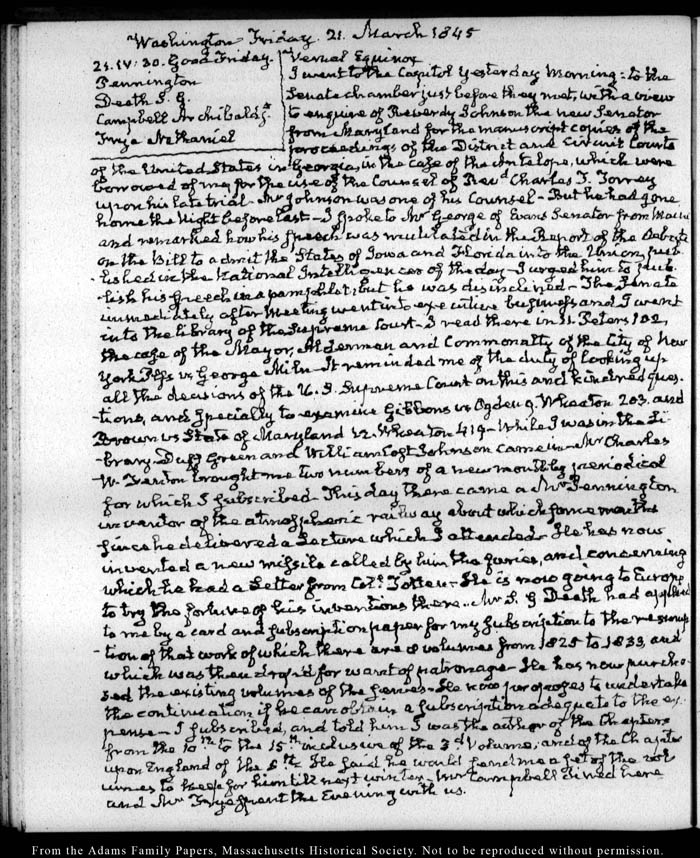 Washington Friday. 21. March 1845
21. IV: 30. Good Friday.
Pennington
Death S. G.
Campbell Archibald Jr
Frye Nathaniel
Vernal Equinox
I went to the Capitol yesterday morning: to the
Senate chamber just before they met, with a view
to enquire of Reverdy Johnson the new Senator
from Maryland for the manuscript copies of the
proceedings of the District and Circuit Courts
of the United States in Georgia, in the case of the Antelope, which were
borrowed of me, for the use of the Counsel of Revd Charles T. Torrey
upon his late trial - Mr Johnson was one of his Counsel - But he had gone
home the Night before last - I spoke to Mr George of Evans Senator from Maine
and remarked how his speech was mutilated in the Report of the Debate
on the Bill to admit the States of Iowa and Florida into the Union, pub-
-lished in the National Intelligencer of the day - I urged him to pub-
-lish his speech in a pamphlet; but he was disinclined - The Senate
immediately after meeting went into executive business and I went
into the library of the Supreme Court - I read there in 11. Peters 102,
the case of the Mayor, Alderman and Commonalty of the City of New
York Plffs vs George Miln - It reminded me of the duty of looking up
all the decisions of the U. S. Supreme Court on this and kindred ques-
-tions, and specially to examine Gibbons vs Ogden 9. Wheaton 203. and
Brown vs State of Maryland 12. Wheaton 419 - While I was in the Li-
-brary Duff Green and William Cost Johnson came in - Mr Charles
W. brought me two numbers of a new monthly periodical
for which I subscribed - This day there came a Mr Pennington
inventor of the atmospheric railway about which some months
since he delivered a Lecture which I attended - He has now
invented a new missile called by him the furies, and concerning
which he had a Letter from Coll. Totten - He is now going to Europe
to try the fortune of his inventions there. Mr S. G Death had applied
to me by a card and subscription paper for my subscription to the resump-
-tion of that work of which there are 8 volumes from 1825 to 1833, and
which was then dropd for want of patronage - He has now purcha-
sed the existing volumes of the series - He now proposes to undertake
the continuation if he can obtain a subscription adequate to the ex-
pense - I subscribed, and told him I was the author of the Chapters
from the 10th to the 15th inclusive of the 3d Volume, and of the Chapter
upon England of the 5th. He said he would send me a set of the vol-
umes to keep for him till next winter - Mr Campbell dined here
and Mr Frye spent the Evening with us.
From the Adams Family Papers, Massachusetts Historical Society. Not to be reproduced without permission.